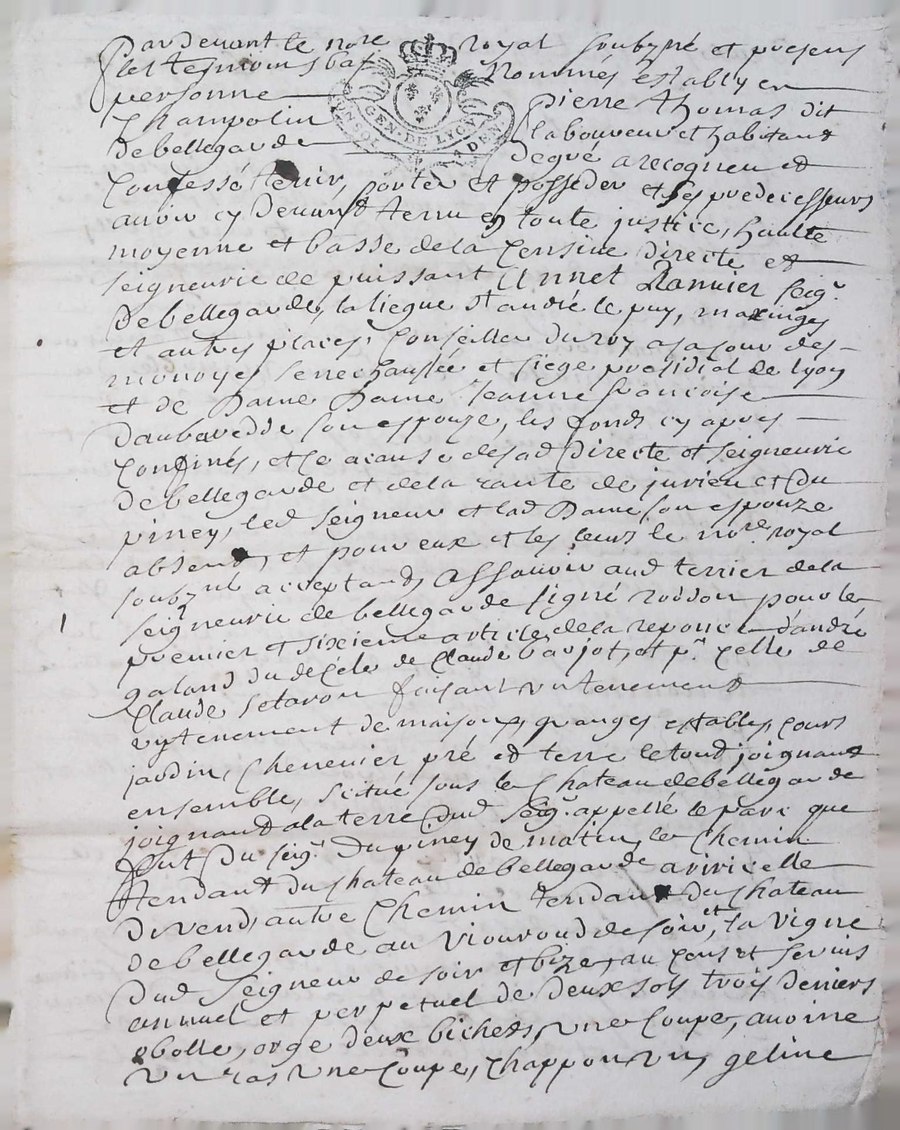 Pardevant le nore royal soubzne et presens
les tesmoins bas nommés estably en
personne pierre thomas dit
Champolin laboureur et habitant
de bellegarde degré a recogneu et
Confessé tenir, porter et posseder et ses predecesseurs
avoir cy devant tenu en toute justice, haulte
moyenne et basse de la Censive directe et
seigneurie de puissant Annet Ranvier seigr.
de bellegarde, la liegue St andré le puy, maringes
et autres places, Conseiller du roy a sa cour des
monoyes senechaussée et siege presidial de lyon
et de Dame Dame Jeanne françoise
daubarede son espouze, les fonds cy apres
Confinés, et ce a cause de sad directe et seigneurie
de bellegarde et de la rante de jurieu et du
piney, led seigneur et lad Dame son espouze
absends, et pour eux et les leurs le nore. royal
soubzne acceptand, Assavoir aud terrier de la
seigneurie de bellegarde signé roison pour le
premier et sixieme article de la reponce d'andré
galand du de Claude barjot, et pr. celle de
Claude setaron faisant un tenement
un tenement de maisons, granges establés, cours
jardin, Chenevier pré et terre le tout joignant
ensemble, scitué sous le Chateau de bellegarde
joignand a la terre dud seigr. appellé le parc que
fut du seigr. du piney de matin, le Chemin
tendant du chateau de bellegarde a viricelle
de vend, autre Chemin tendant du Chateau
de bellegarde au viouroud de soir, et la vigne
dud Seigneur de soir et bize, au Cens et servis
annuel et perpetuel de deux sols trois deniers
obolle, orge deux bichets, une Coupe, avoine
un ras une Coupe, Chappon un, geline
GEN. DE LYON